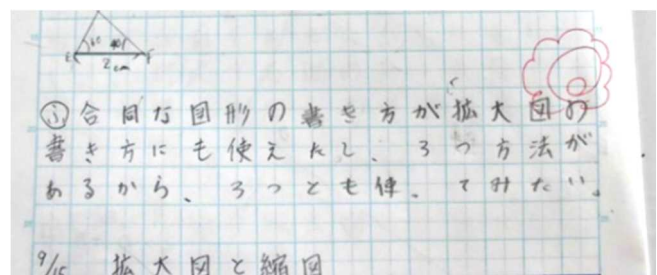 60° 40°
E F
2cm
ふ 合同な図形の書き方が拡大図の
書き方にも使えたし、3つ方法が
あるから、3つとも使ってみたい。
9/15 拡大図と縮図